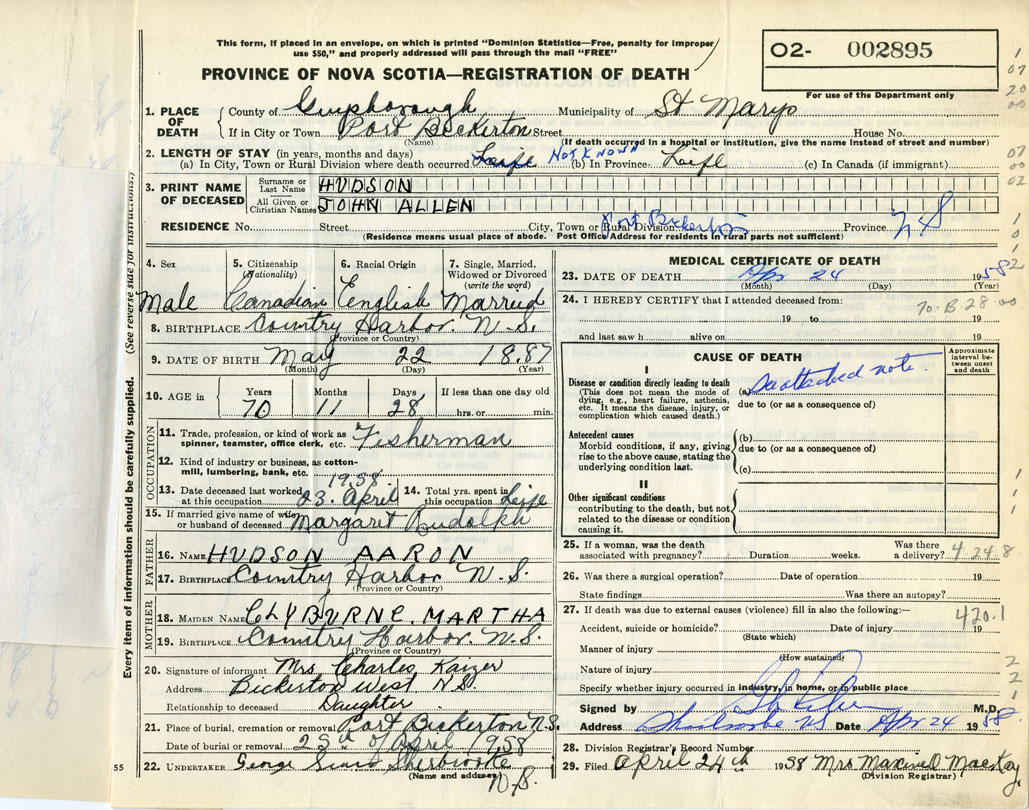 This form, if placed in an envelope, on which is printed "Dominion Statistics—Free, penalty for improper
use $50," and properly addressed will pass through the mail "FREE"
O2- 002895
For use of the Department only
PROVINCE OF NOVA SCOTIA—REGISTRATION OF DEATH
1. PLACE OF DEATH County of Guysborough Municipality of St Marys
If in City or Town Port Bickerton Street House No.
(Name) (If death occurred in a hospital or institution, give the name instead of street and number)
2. LENGTH OF STAY (in years, months and days)
(a) In City, Town or Rural Division where death occurred Life Not Known (b) In Province Life (c) In Canada (if immigrant)
3. PRINT NAME OF DECEASED Surname or Last Name HUDSON
All Given or Christian Names JOHN ALLEN
RESIDENCE No. Street City, Town or Rural Division Port Bickerton Province N S
(Residence means usual place of abode. Post Office Address for residents in rural parts not sufficient)
4. Sex 5. Citizenship (Nationality) 6. Racial Origin 7. Single, Married, Widowed or Divorced (write the word)
Male Canadian English Married
8. BIRTHPLACE Country Harbor. N.S.
(Province or Country)
9. DATE OF BIRTH May 22 1887
(Month) (Day) (Year)
10. AGE in Years Months Days If less than one day old
70 11 28 hrs. or min.
OCCUPATION
11. Trade, profession, or kind of work as spinner, teamster, office clerk, etc. Fisherman
12. Kind of industry or business, as cotton-mill, lumbering, bank, etc.
1958
13. Date deceased last worked at this occupation 23. April 14. Total yrs. spent in this occupation Life
15. If married give name of wife or husband of deceased Margaret Rudolph
FATHER
16. NAME HUDSON AARON
17. BIRTHPLACE Country Harbor N.S.
(Province or Country)
MOTHER
18. MAIDEN NAME CLYBURNE. MARTHA
19. BIRTHPLACE Country Harbor. N.S.
(Province or Country)
20. Signature of informant Mrs. Charles Kaizer
Address Bickerton West N.S.
Relationship to deceased Daughter
21. Place of burial, cremation or removal Port Bickerton N.S.
Date of burial or removal of April 1958
22. UNDERTAKER George Sherbrooke
(Name and address) N.S.
55
Every item of information should be carefully supplied. (See reverse side for instructions.)
MEDICAL CERTIFICATE OF DEATH
23. DATE OF DEATH Apr 24 1958
(Month) (Day) (Year)
24. I HEREBY CERTIFY that I attended deceased from:
70. B. 28 00
19 to 19
and last saw h alive on 19
CAUSE OF DEATH
Approximate interval between onset and death
I
Disease or condition directly leading to death
(This does not mean the mode of dying, e.g., heart failure, asthenia, etc. It means the disease, injury, or complication which caused death.)
(a) See attached note.
due to (or as a consequence of)
Antecedent causes
Morbid conditions, if any, giving rise to the above cause, stating the underlying condition last.
(b)
due to (or as a consequence of)
(c)
II
Other significant conditions
contributing to the death, but not related to the disease or condition causing it.
25. If a woman, was the death associated with pregnancy? Duration weeks. Was there a delivery? 4.24.8
26. Was there a surgical operation? Date of operation 19
State findings Was there an autopsy?
27. If death was due to external causes (violence) fill in also the following:—
420.1
Accident, suicide or homicide? Date of injury 19
(State which)
Manner of injury
(How sustained)
Nature of injury
Specify whether injury occurred in industry, in home, or in public place
Signed by M.D.
Address Sherbrooke NS Date Apr 24 1958
28. Division Registrar's Record Number
29. Filed April 24th 1958 Mrs Maxwell MacKay
(Division Registrar)